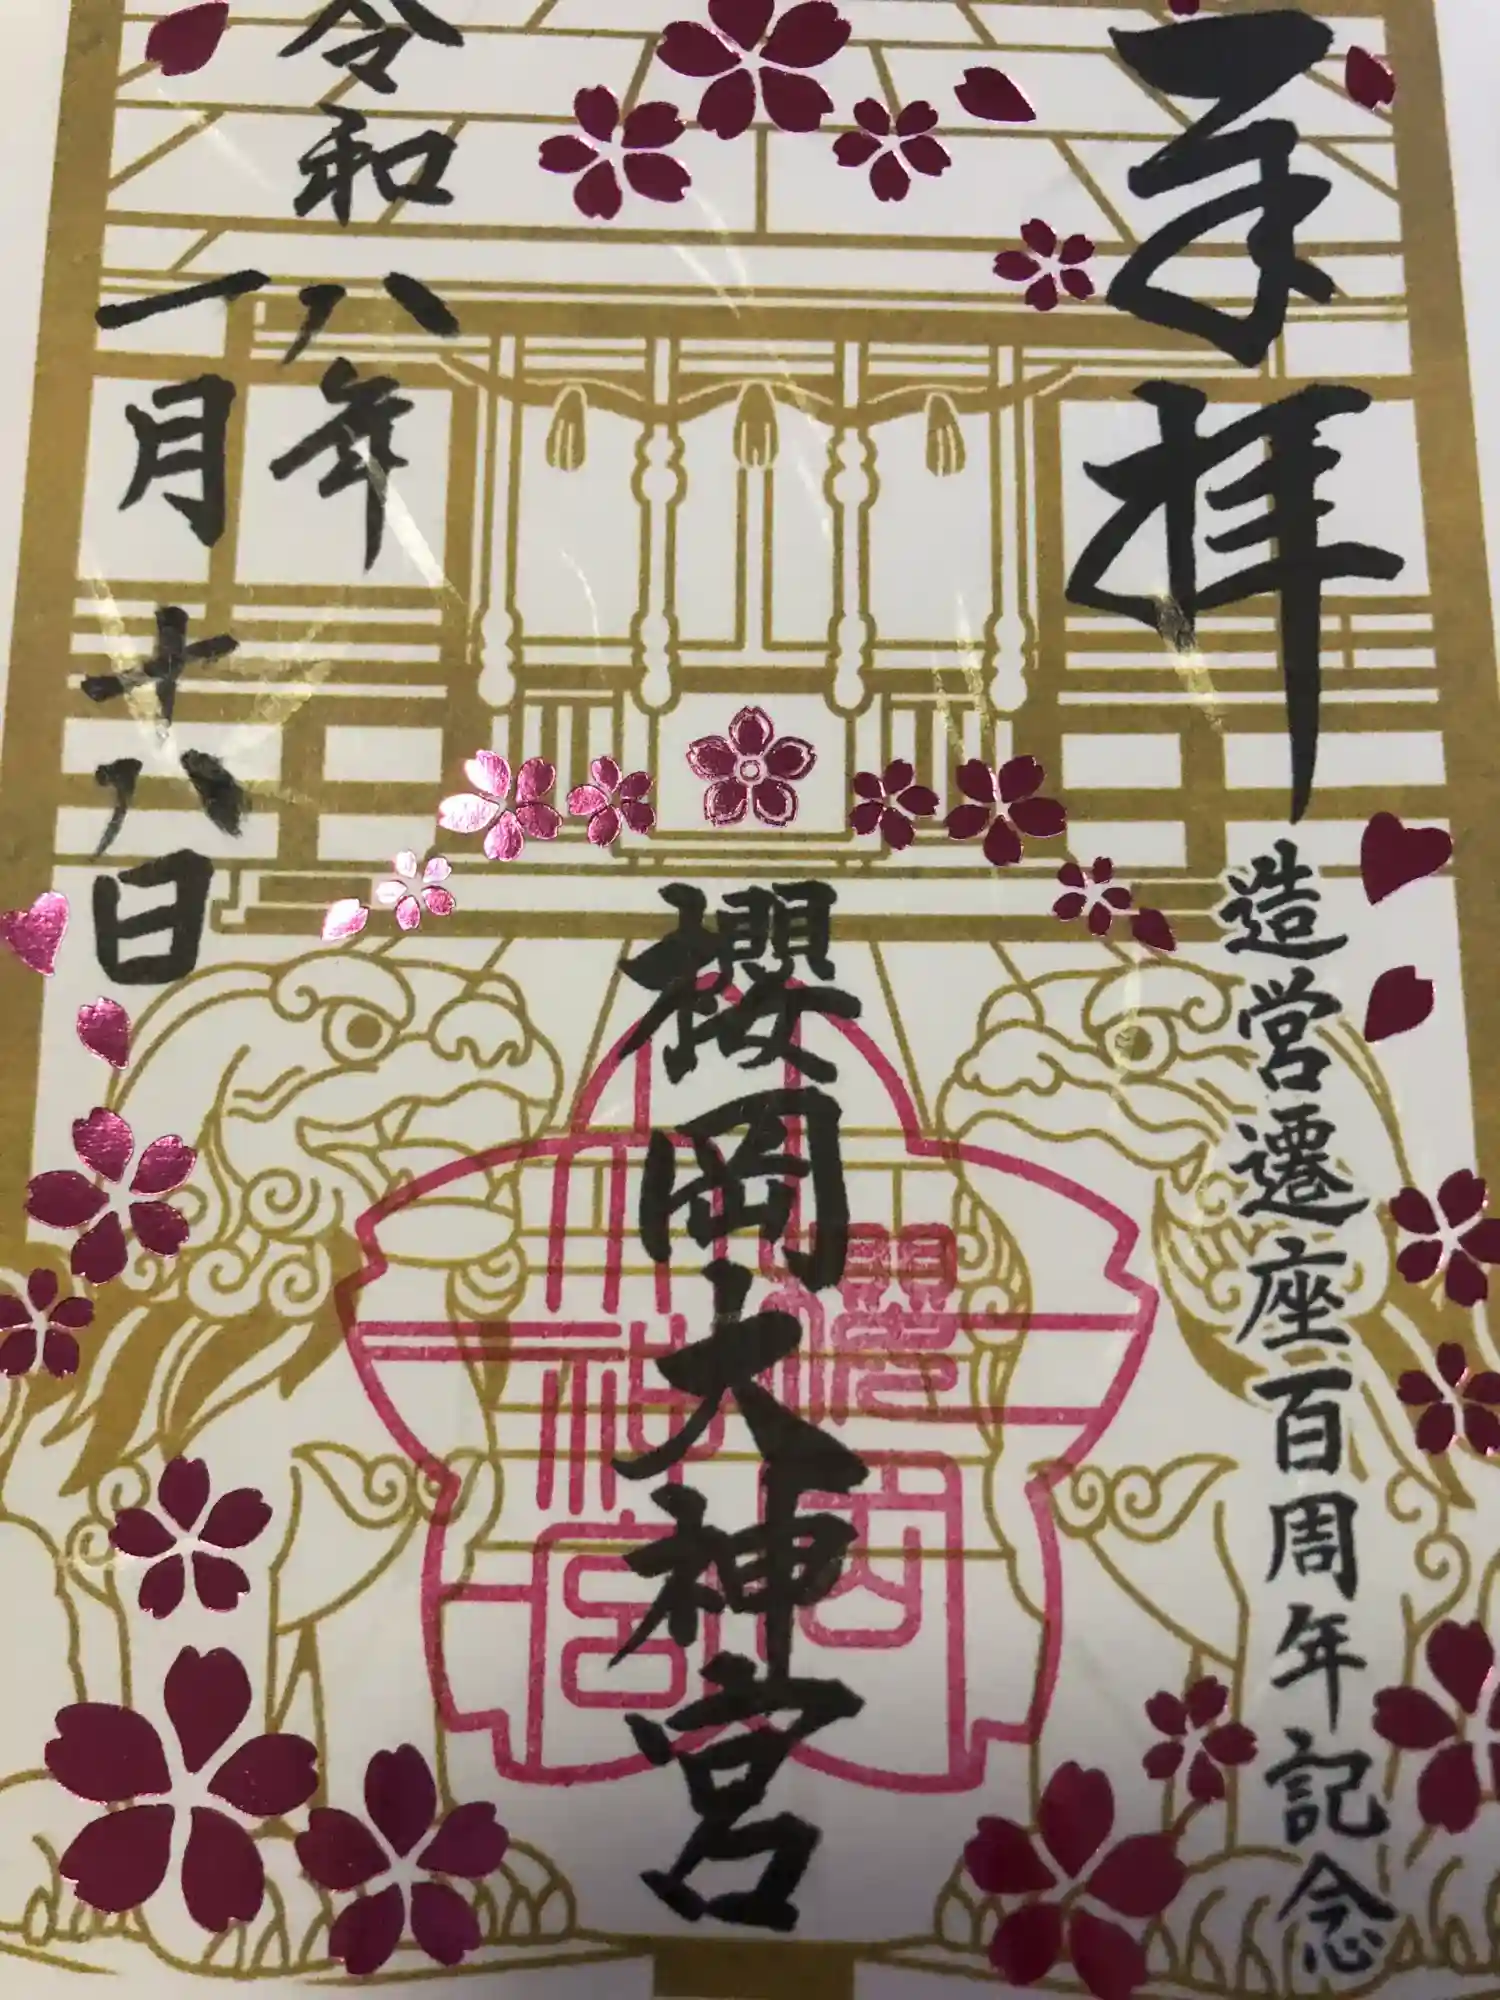 奉拝
造営遷座百周年記念
櫻岡大神宮
櫻岡
大神宮
令和八年
一月十八日